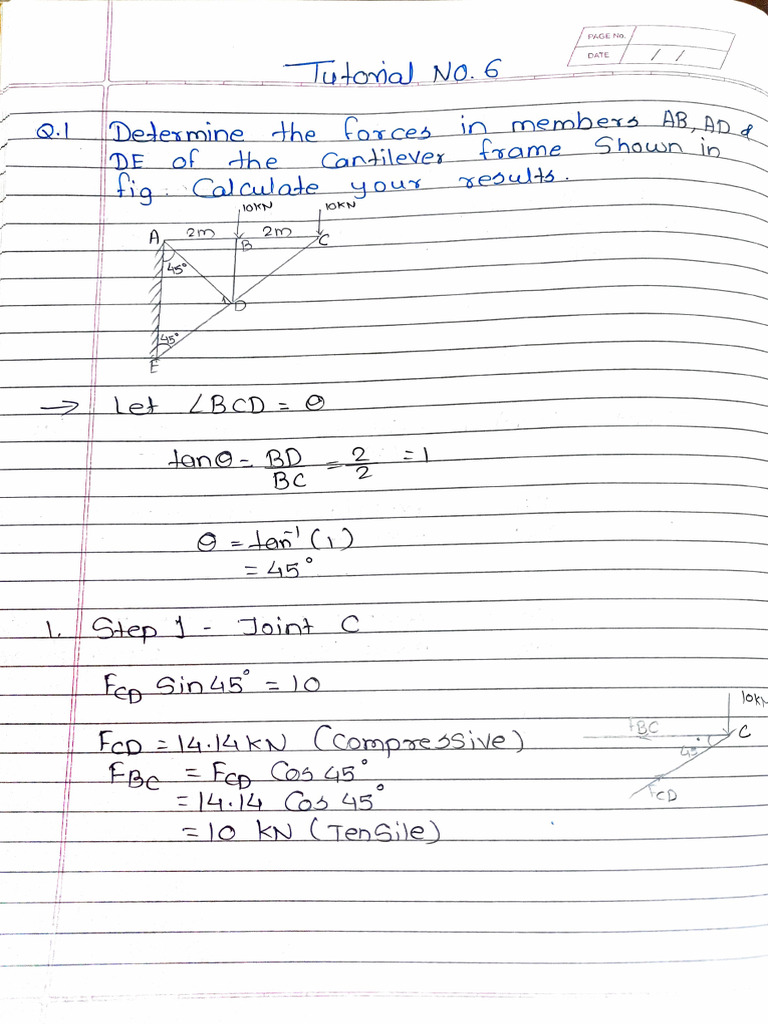 PAGE No.
DATE / /
Tutorial NO. 6
Q.1 Determine the forces in members AB, AD &
DE of the Cantilever frame Shown in
fig. Calculate your results.
10KN 10KN
A 2m B 2m C
45°
D
45°
E
→ Let ∠BCD = θ
tanθ = BD/BC = 2/2 = 1
θ = tan⁻¹ (1)
= 45°
1. Step 1 - Joint C
FCD Sin 45° = 10
10KN
FCD = 14.14 KN (Compressive)
FBC C
45°
FBC = FCD Cos 45°
FCD
= 14.14 Cos 45°
= 10 KN (Tensile)